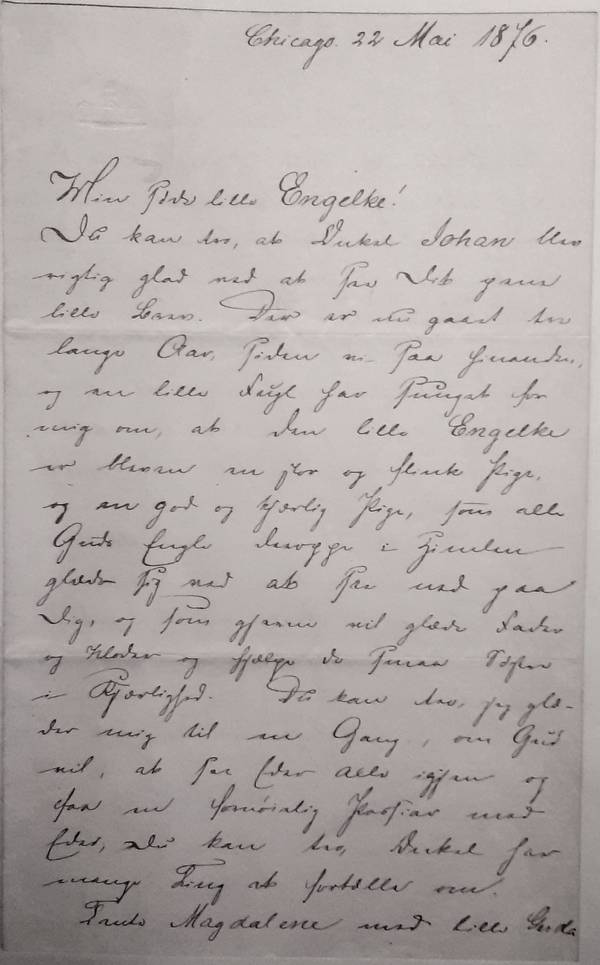 Chicago. 22 Mai 1876.
Min søde lille Engelke!
Du kan tro, at Onkel Johan blev
rigtig glad ved at see Dit pene
lille Brev. Der er nu gaaet tre
lange Aar, siden vi saa hinanden,
og en lille Fugl har sunget for
mig om, at den lille Engelke
er bleven en stor og flink Pige,
og en god og kjærlig Pige, som alle
Guds Engle deroppe i Himlen
glæder sig ved at see ned paa
Dig, og som gjerne vil glæde Fader
og Moder og hjælpe de smaa Søstre
i Kjærlighed. Du kan tro, jeg glæ-
der mig til en Gang, om Gud
vil, at see Eder alle igjen og
faa en fornøielig Passiar med
Eder, Du kan tro, Onkel har
mange Ting at fortælle om.
Tante Magdalene med lille Gerda